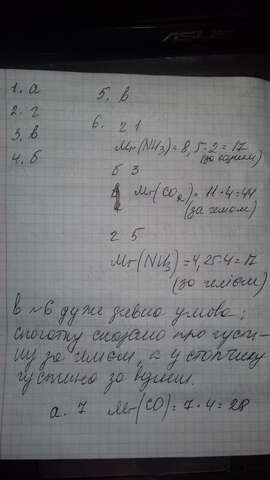 ASUS
1. а
2. г
3. в
4. б
5. в
6.
г 1
Mr(NH3) = 8,5·2 = 17
(за воднем)
б 3
Mr(CO2) = 11·4 = 44
(за гелієм)
г 5
Mr(NH3) = 4,25·4 = 17
(за гелієм)
В №6 дуже дивна умова:
спочатку сказано про густи-
ну за гелієм, а у стовпчику
густина за воднем.
а. 7 Mr(CO) = 7·4 = 28